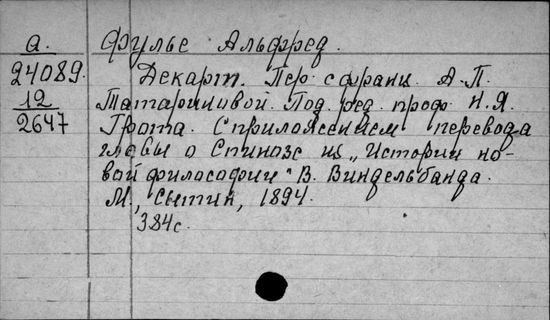 а. Фулье Альфред.
24089. Декарт. Пер. с франц. А.П.
12 Татариновой. Под. ред. проф. Н.Я.
2647 Грота. С приложением перевода
главы о Спинозе из „Истории но-
вой философии" В. Виндельбанда.
М., Сытин, 1894.
384 с.